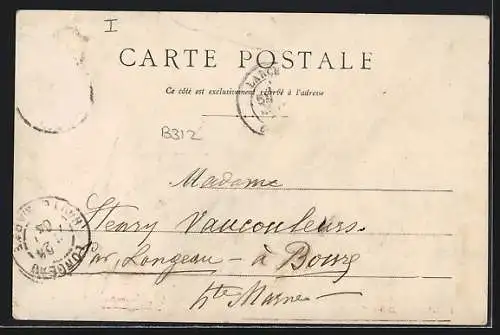 I
CARTE POSTALE
Ce côté est exclusivement réservé à l'adresse
B312
Madame
Henry Vaucouleurs
Par Longeau - à Bourg
Hte Marne
LONGEAU